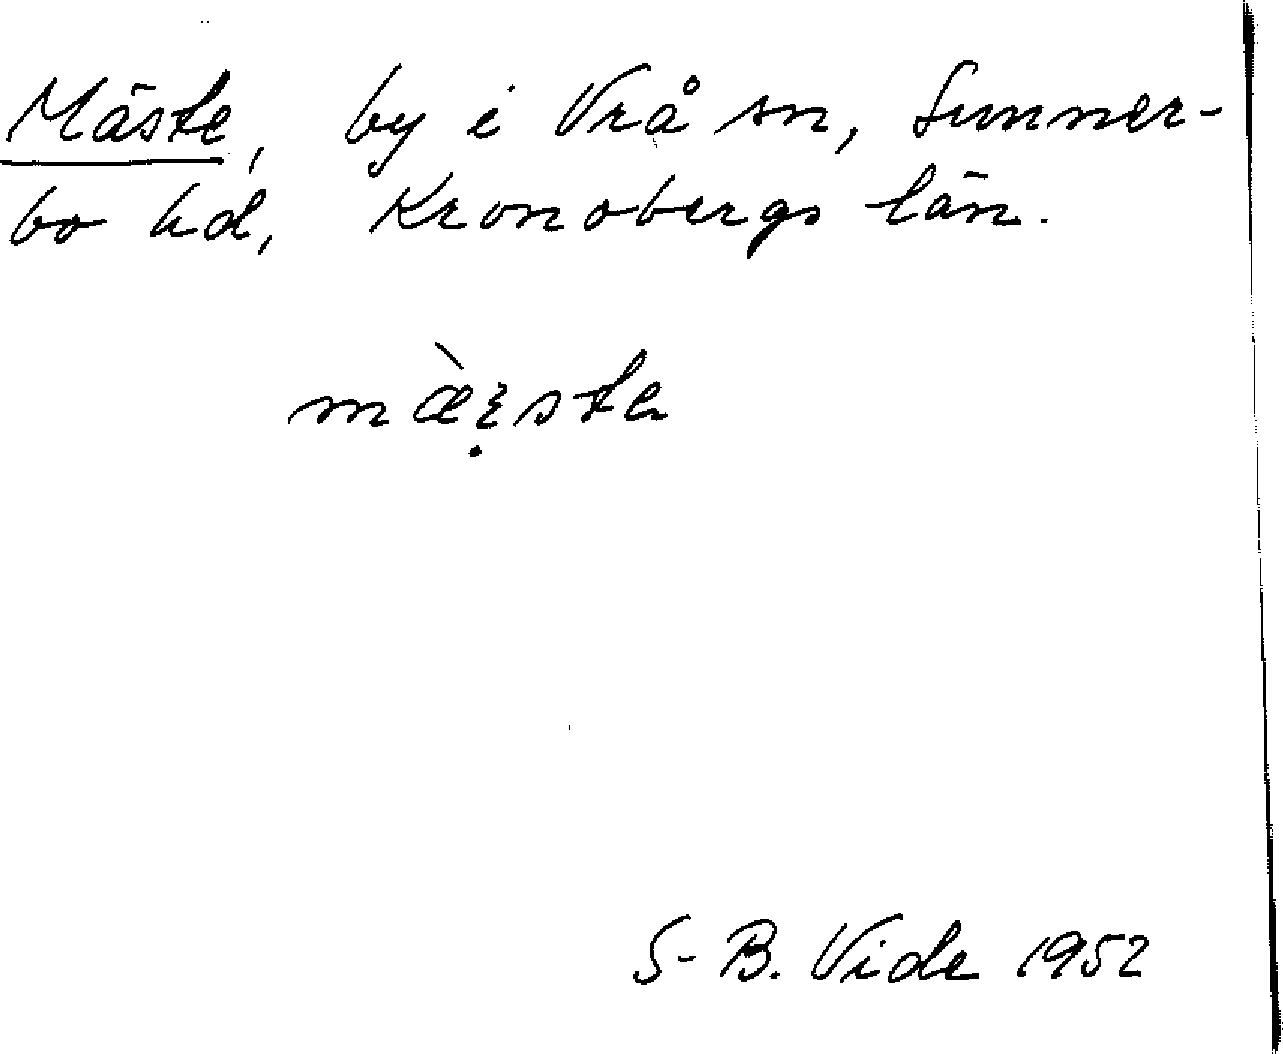 Mäste, by i Vrå sn, Sunner-
bo hd, Kronobergs län.
mæ̀ʓ̣ste
S-B. Vide 1952